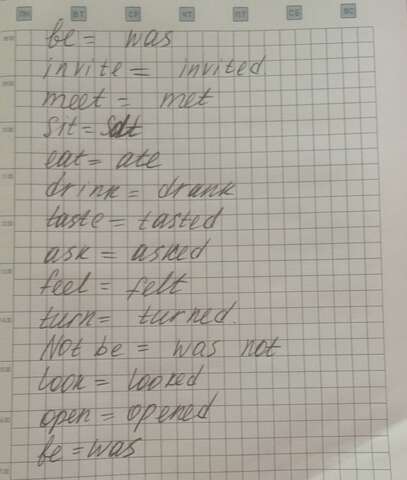 ПН ВТ СР ЧТ ПТ СБ ВС
be = was
invite = invited
meet = met
sit = sat
eat = ate
drink = drank
taste = tasted
ask = asked
feel = felt
turn = turned.
Not be = was not
look = looked
open = opened
be = was